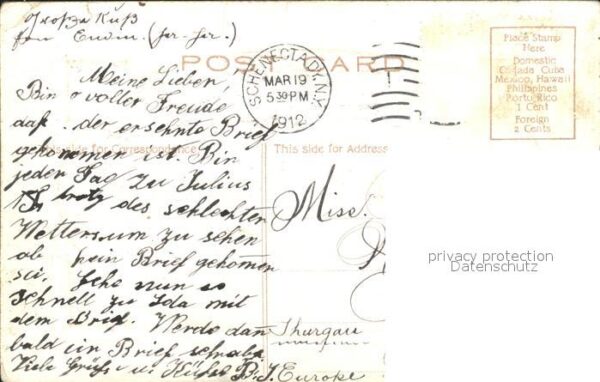 Große Kuß
from Erwin. (ha-ha.)
POST CARD
SCHENECTADY, N.Y.
MAR 19
5 30 PM
1912
Place Stamp
Here
Domestic
Canada Cuba
Mexico, Hawaii
Philippines
Porto Rico
1 Cent
Foreign
2 Cents
Meine Lieben,
Bin voller Freude
daß der ersehnte Brief
This side for Correspondence
gekommen ist. Bin
jeden Tag zu Julius
trotz des schlechten
Wetters um zu sehen
ob kein Brief gekommen
sei, Gehe nun so
schnell zu Ida mit
dem Brief. Werde dan
bald ein Brief schreiben
Viele Grüße u. Küße
This side for Address
Miss.
Thurgau
Europe
privacy protection
Datenschutz